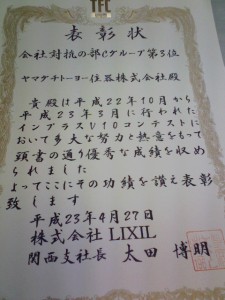 TFC
表彰状
会社対抗の部Cグループ第3位
ヤマグチトーヨー住器株式会社殿
貴殿は平成22年10月から
平成23年3月に行われた
インプラスV10コンテストに
おいて多大な努力と熱意をもって
頭書の通り優秀な成績を収め
られました
よってここにその功績を讃え表彰
致します
平成23年4月27日
株式会社 LIXIL
関西支社長 太田 博明